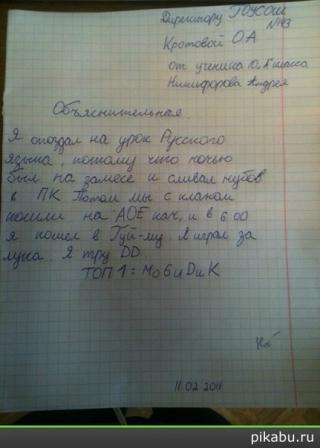 Директору ГОУСОШ
№143
Кротовой О А
От ученика 10 "Б" класса
Никифорова Андрея
Объяснительная
Я опоздал на урок Русского
языка, потому что ночью
был на замесе и сливал нубов
в ПК. Потом мы с кланом
пошли на АОЕ кач, и в 6 00
я пошел в Гуй-му. Я играл за
лука. Я тру DD
ТОП 1 = МоБиDиК
11.02 2011
pikabu.ru